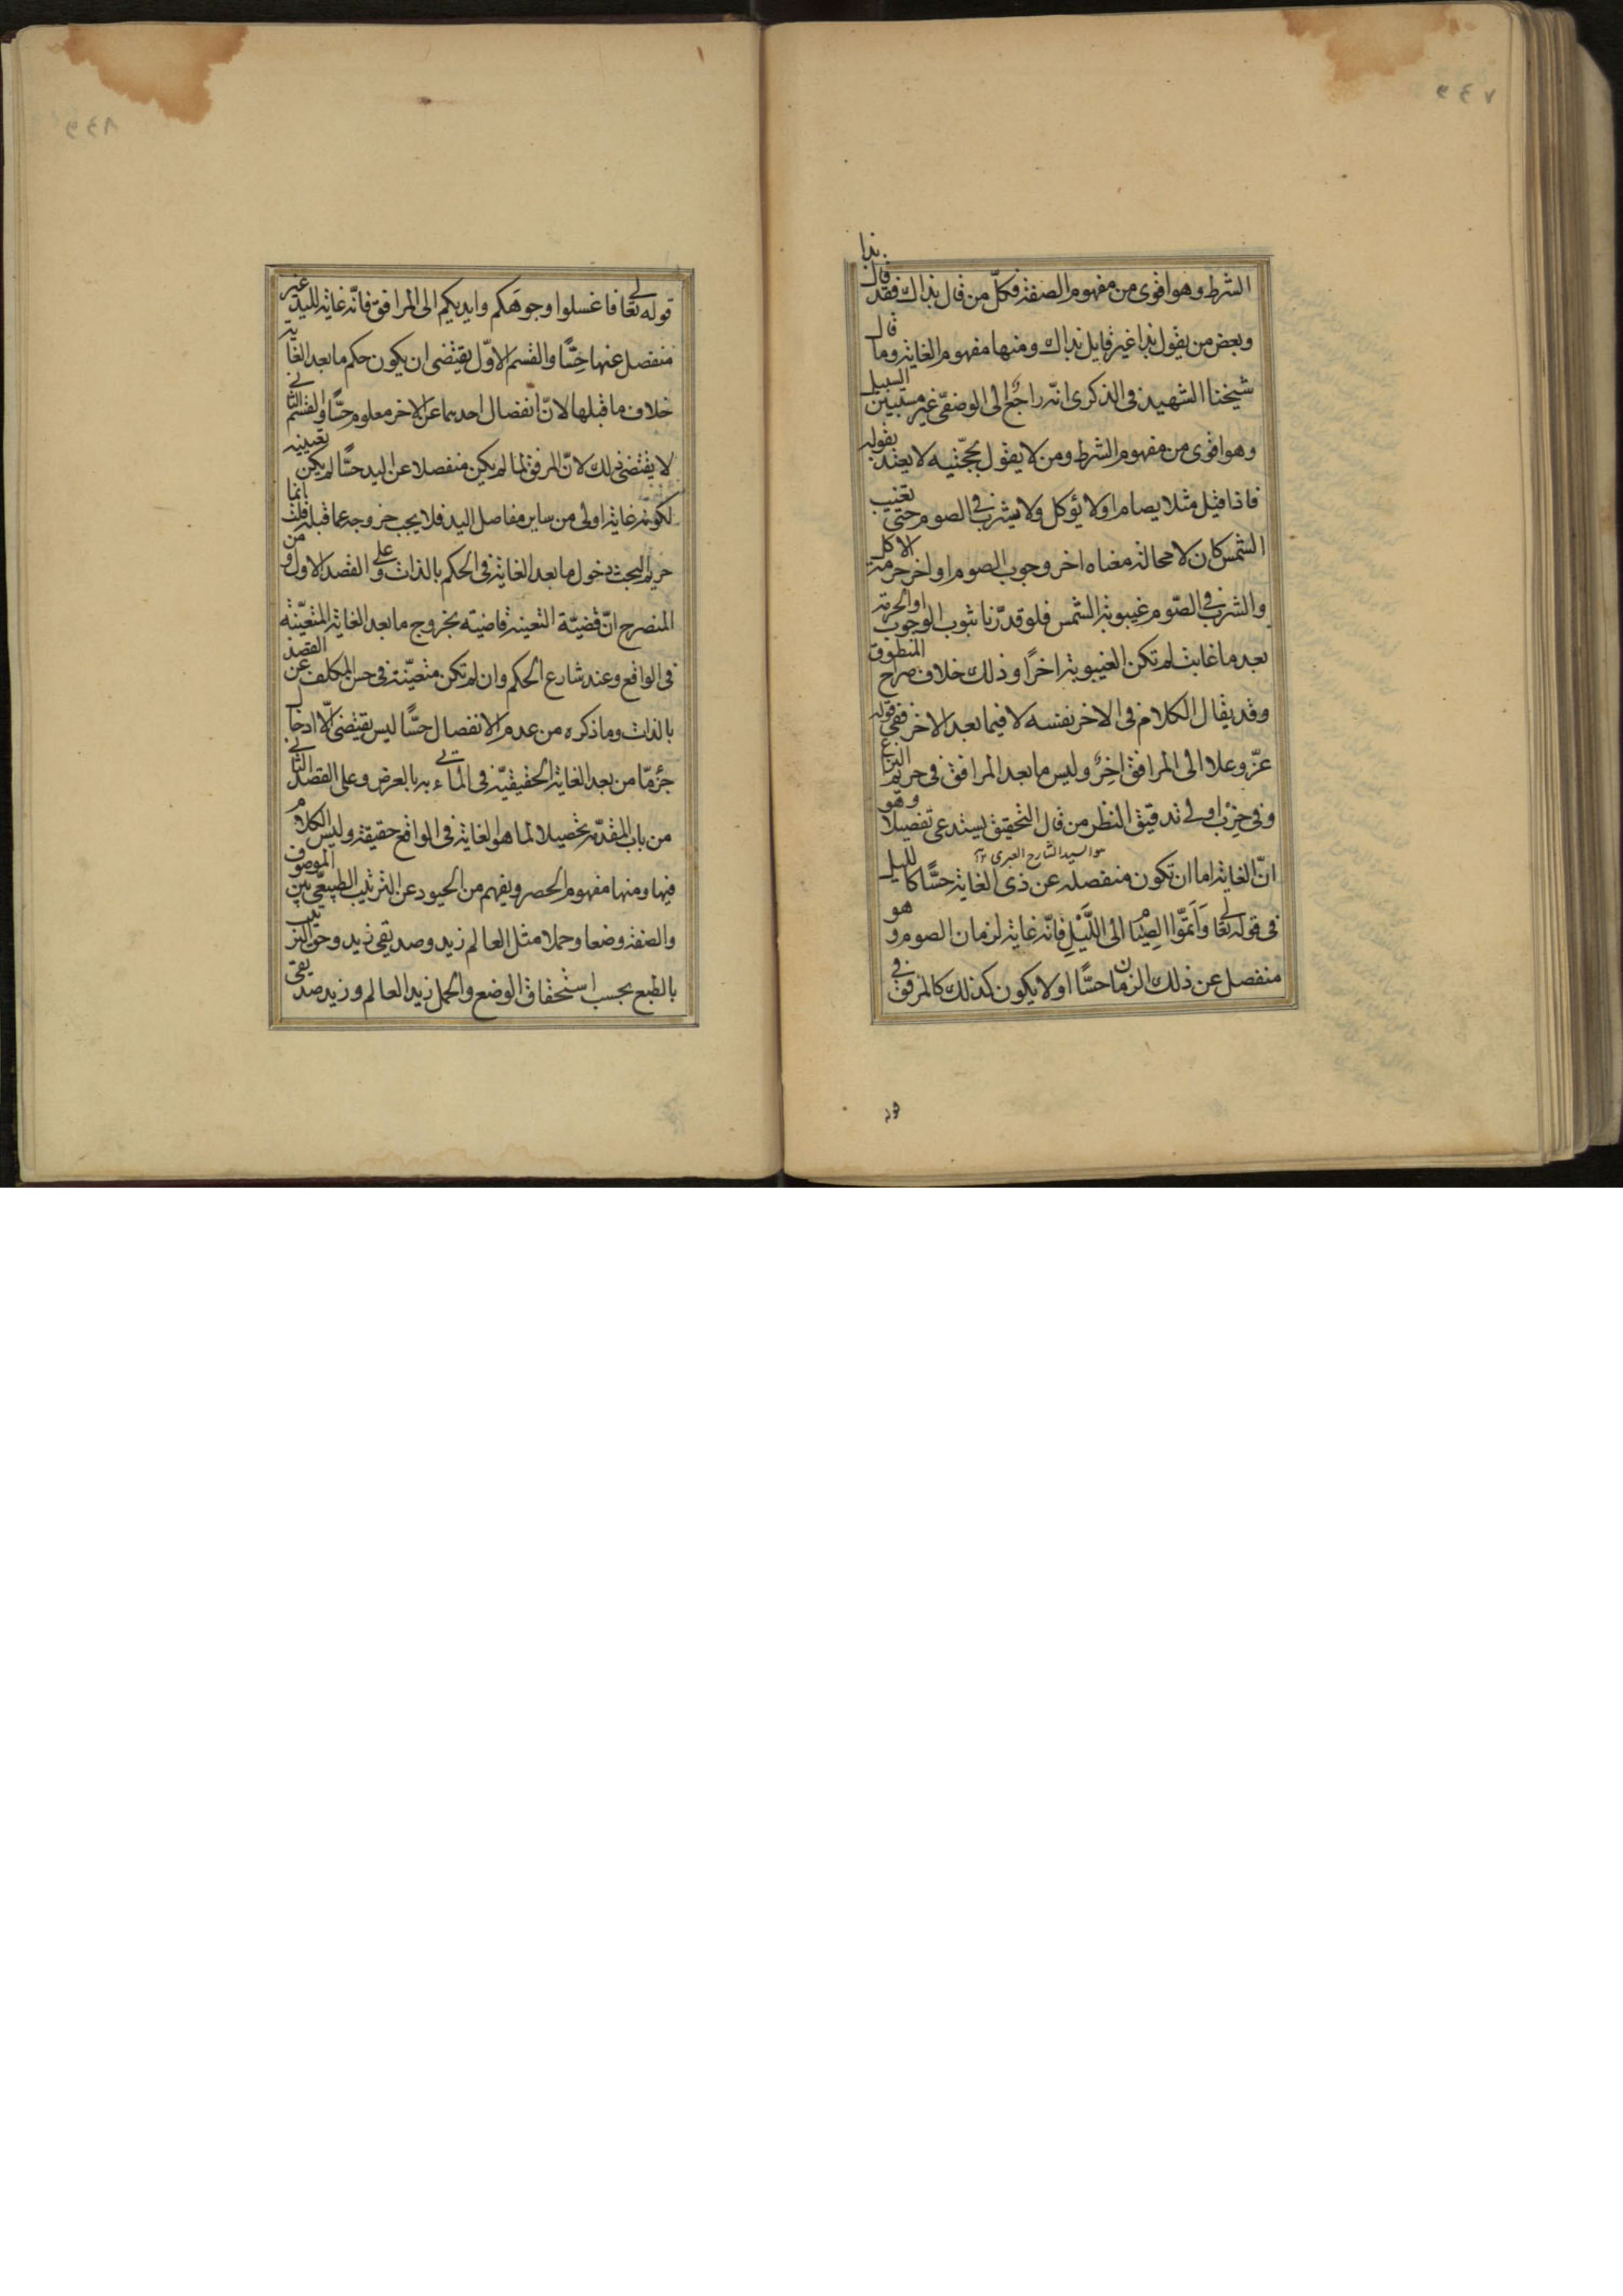 الشرط وهو اقوى من مفهوم الصفة فكلّ من قال بذاك فقد قال بذا
وبعض من يقول بذا غير قايل بذاك ومنها مفهوم الغاية وما قال
شيخنا الشهيد فى الذكرى انّه راجع الى الوصفىّ غير مستبين السبيل
وهو اقوى من مفهوم الشرط ومن لا يقول بحجّيته لا يعتد بقوله
فاذا قيل مثلا يصام او لا يؤكل ولا يشرب فى الصوم حتى تغيب
الشمس كان لا محالة معناه اخر وجوب الصوم او اخر حرمة الاكل
والشرب فى الصّوم غيبوبة الشمس فلو قدّرنا ثبوت الوجوب او الحرمة
بعد ما غابت لم تكن الغيبوبة اخرًا وذلك خلاف صراح المنطوق
وقد يقال الكلام فى الاخر نفسه لا فيما بعد الاخر ففى قوله
عزّ وعلا الى المرافق اخِرٌ وليس ما بعد المرافق فى حريم النزاع
وفى حزب اولى تدقيق النظر من قال التحقيق يستدعى تفصيلا وهو
هو السيد الشارح العبرى
انّ الغاية اما ان تكون منفصلة عن ذى الغاية حسًّا كالليل
فى قوله تعالى وَاَتمّوا الصِيَام الى اللَّيْلِ فانّه غاية لزمان الصوم وهو
منفصل عن ذلك الزمان حسًّا او لا يكون كذلك كالمرفق فى
قوله تعالى فاغسلوا وجوهكم وايديكم الى المرافق فانّه غاية لليد غير
منفصل عنها حِسًّا والقسم الاوّل يقتضى ان يكون حكم ما بعد الغاية
خلاف ما قبلها لانّ انفصال احدهما عن الاخر معلوم حسًّا والقسم الثانى
لا يقتضى ذلك لانّ المرفق لما لم يكن منفصلا عن اليد حسًّا لم يكن تعيينه
لكونه غاية اولى من ساير مفاصل اليد فلا يجب خروجه عما قبله قلت انما
حريم البحث دخول ما بعد الغاية فى الحكم بالذات وعلى القصد الاول و من
المنصرح انّ قضيّة التعينة قاضية بخروج ما بعد الغاية المتعيّنة
فى الواقع وعند شارع الحكم وان لم تكن متعيّنة فى حس المكلف عن القصد
بالذات وما ذكره من عدم الانفصال حسًّا ليس يقتضى الّا ادخال
جزء مّا من بعد الغاية الحقيقيّة فى الماتى به بالعرض وعلى القصد الثانى
من باب المقدّمة تحصيلا لما هو الغاية فى الواقع حقيقة وليس الكلام
فيها ومنها مفهوم الحصر ويفهم من الحيود عن الترتيب الطبيعىّ بين الموصوف
والصفة وضعا وحملا مثل العالم زيد وصديقى زيد وحق الترتيب
بالطبع بحسب استحقاق الوضع والحمل زيد العالم وزيد صديقى